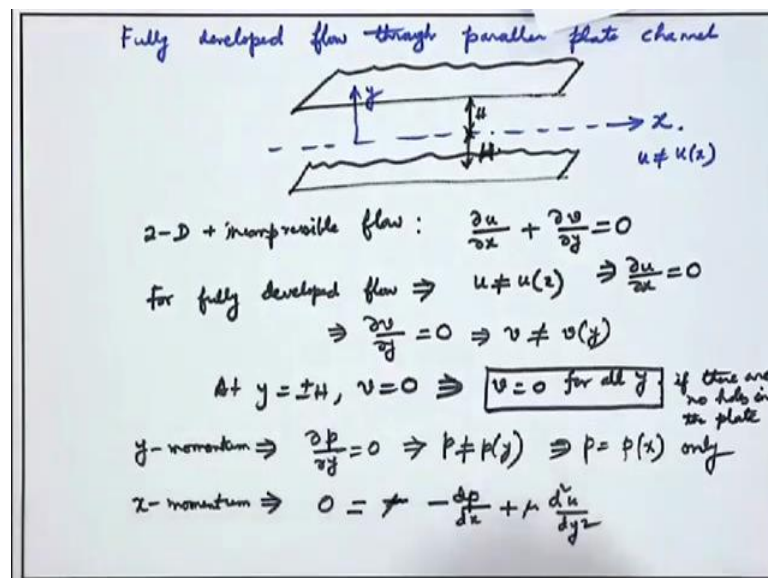 Fully developed flow through parallel plate channel
y
H
x.
H
u ≠ u(x)
2-D + incompressible flow : ∂u/∂x + ∂v/∂y = 0
For fully developed flow ⇒ u ≠ u(x) ⇒ ∂u/∂x = 0
⇒ ∂v/∂y = 0 ⇒ v ≠ v(y)
At y = ±H, v = 0 ⇒ v = 0 for all y if there are
no holes in
the plate
y-momentum ⇒ ∂p/∂y = 0 ⇒ p ≠ p(y) ⇒ p = p(x) only
x-momentum ⇒ 0 = - dp/dx + μ d²u/dy²